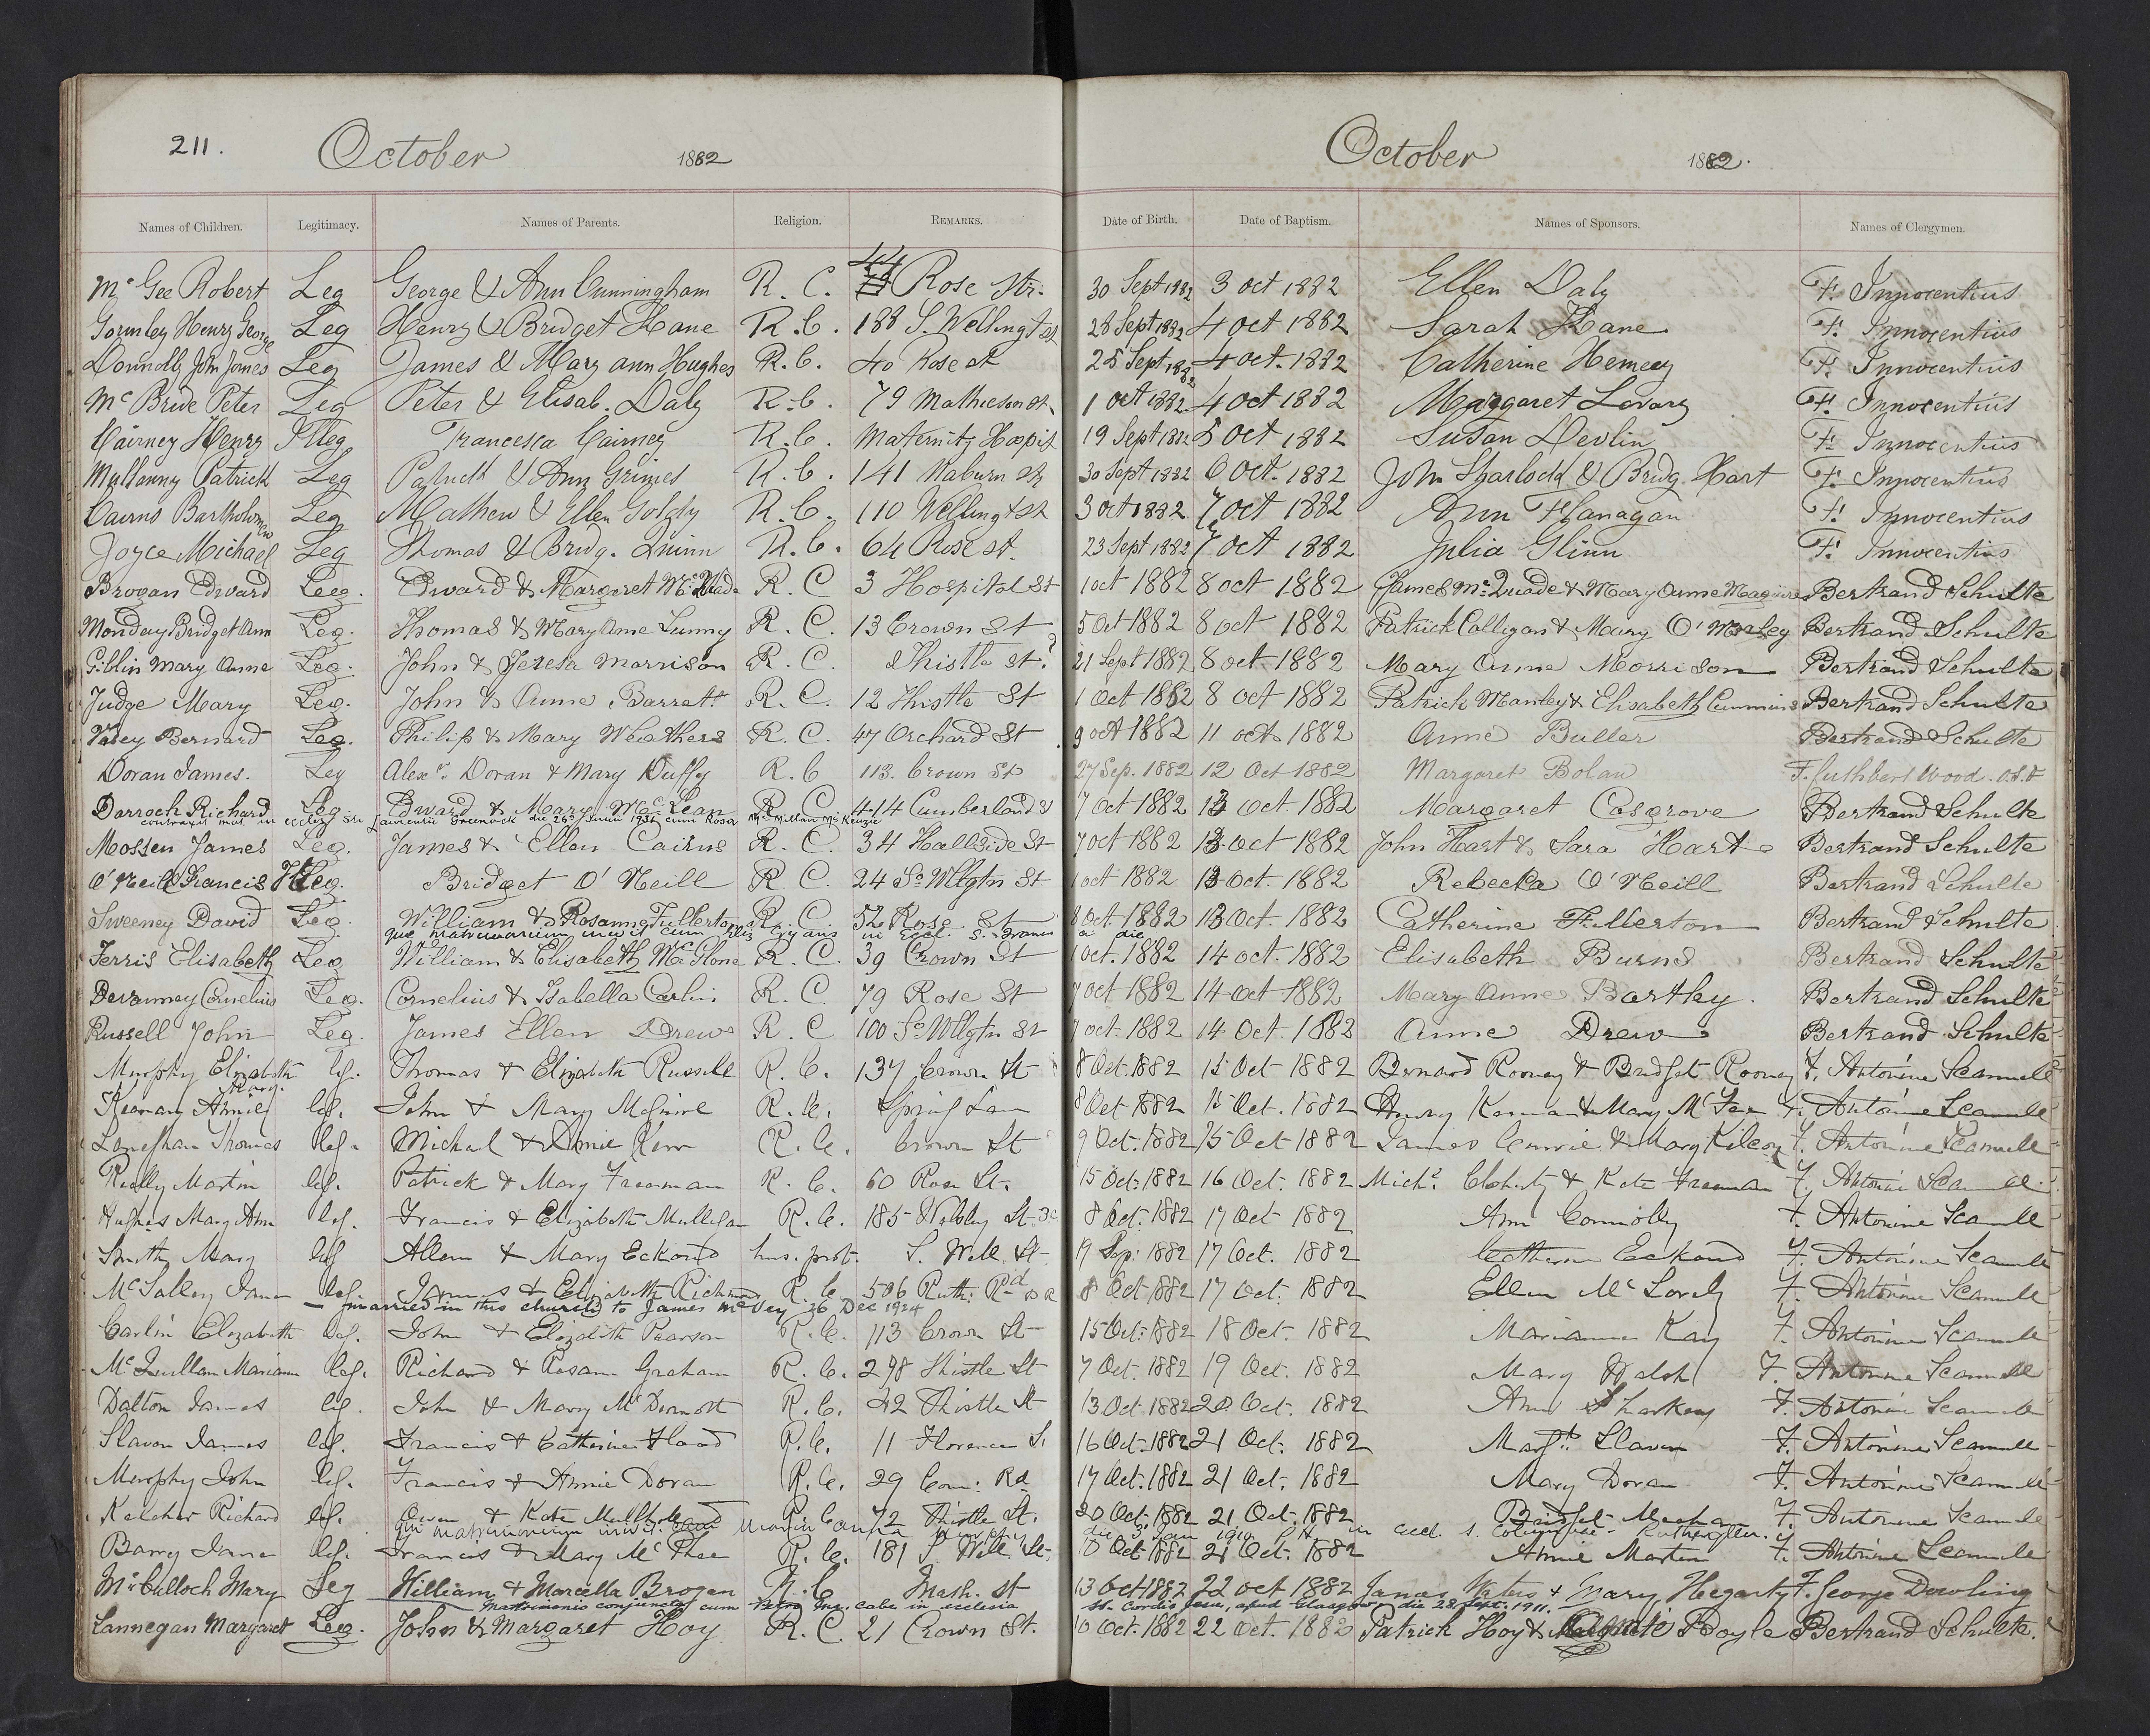 211. October 1882 October 1882.
Names of Children. Legitimacy. Names of Parents. Religion. REMARKS. Date of Birth. Date of Baptism. Names of Sponsors. Names of Clergymen.
Mc Gee Robert Leg George & Ann Cunningham R. C. 44 Rose Str. 30 Sept 1882 3 oct 1882 Ellen Daly F. Innocentius
Gormley Henry George Leg Henry & Bridget Kane R.C. 188 S. Wellingt st 28 Sept 1882 4 oct 1882 Sarah Kane F. Innocentius
Donnolly John James Leg James & Mary ann Hughes R.C. 40 Rose st 25 Sept 1882 4 oct. 1882 Catherine F. Innocentius
Mc Bride Peter Leg Peter & Elisab. Daly R.C. 79 Mathieson st. 1 oct 1882 4 oct 1882 Margaret F. Innocentius
Cairney Henry Illeg Francesca Cairney R.C. Maternity Hospit 19 Sept 1882 5 oct 1882 Susan Devlin F. Innocentius
Mulhanny Patrick Leg Patrick & Ann Grimes R.C. 141 Waburn St 30 Sept 1882 6 oct. 1882 John Sharlock & Bridg. Hart F. Innocentius
Cairns Bartholomew Leg Mathew & Ellen R.C. 110 Wellingt st 3 oct 1882 7 oct 1882 Ann Flanagan F. Innocentius
Joyce Michael Leg Thomas & Bridg. Quinn R.C. 64 Rose st. 23 Sept 1882 7 oct 1882 Julia Glinn F. Innocentius
Brogan Edward Leg. Edward & Margaret Mc Quade R. C 3 Hospital St 1 oct 1882 8 oct 1882 James Mc Quade & Mary Anne Maguire Bertrand Schulte
Monday Bridget Ann Leg. Thomas & Mary Anne Lunny R. C. 13 Crown St 5 Oct 1882 8 oct 1882 Patrick Colligan & Mary O' Bertrand Schulte
Giblin Mary Anne Leg. John & Teresa Morrison R. C. Thistle st? 21 Sept 1882 8 oct 1882 Mary Anne Morrison Bertrand Schulte
Judge Mary Leg. John & Anne Barrett R. C. 12 Thistle St 1 Oct 1882 8 oct 1882 Patrick Manley & Elisabeth Cummins Bertrand Schulte
Vesey Bernard Leg. Philip & Mary Wheathers R. C. 47 Orchard St 9 oct 1882 11 oct. 1882 Anne Buller Bertrand Schulte
Doran James. Leg Alexr. Doran & Mary Duffy R.C 113. Crown St 27 Sep. 1882 12 Oct 1882 Margaret Bolan F. Cuthbert Wood. O.S.F
Darroch Richard Leg. Edward & Mary Mc Lean R. C. 414 Cumberland S 7 Oct 1882 13 Oct 1882 Margaret Cosgrove Bertrand Schulte
contraxit mat. in ecclesia Sti Laurentii Greenock die 26a Junii 1931 cum Rosa Mc Millan Mc Kenzie
Mossen James Leg. James & Ellen Cairns R. C. 34 Hallside St 7 oct 1882 13 oct 1882 John Hart & Sara Hart Bertrand Schulte
O'Neill Francis Illeg. Bridget O' Neill R. C. 24 So Wllgtn St 1 oct 1882 13 oct. 1882 Rebecka O'Neill Bertrand Schulte
Sweeney David Leg. William & Rosanna Fullerton R. C. 52 Rose St 8 oct. 1882 13 Oct. 1882 Catherine Fullerton Bertrand Schulte
qui matrimonium inivit cum in Eccl. S. die
Ferris Elisabeth Leg William & Elisabeth Mc Glone R. C. 39 Crown St 1 oct. 1882 14 oct. 1882 Elisabeth Burns Bertrand Schulte
Devanney Cornelius Leg. Cornelius & Isabella Carlin R. C. 79 Rose St 7 oct 1882 14 oct 1882 Mary Anne Bartley. Bertrand Schulte
Russell John Leg. James Ellen Drew R. C 100 So Wllgtn St 7 oct. 1882 14 oct. 1882 Anne Drew Bertrand Schulte
Murphy Elizabeth leg. Thomas & Elizabeth Russell R. C. 137 Crown St 8 Oct. 1882 15 Oct 1882 Bernard Rooney & Bridget Rooney F. Antonine Scannell
Mary.
Keenan Annie leg. John & Mary McGuire R.C. Spring Lane 8 Oct 1882 15 Oct. 1882 Henry Keenan & Mary Mc F. Antonine Scannell
Thomas leg. Michael & Annie Kerr R.C. Crown St 9 Oct. 1882 15 Oct 1882 James & Mary F. Antonine Scannell
Reilly Martin leg. Patrick & Mary Freeman R.C. 60 Rose St. 15 Oct. 1882 16 Oct. 1882 Michl. & Kate Freeman F. Antonine Scannell
Hughes Mary Ann leg. Francis & Elizabeth Mulligan R.C. 185 St. 8 Oct. 1882 17 Oct 1882 Ann Connolly F. Antonine Scannell
Smith Mary leg Allen & Mary Eckond hus. prot. S. Well. St 19 Sep: 1882 17 Oct. 1882 Catherine Eckond F. Antonine Scannell
Jane leg. James & Elizabeth Richmond R.C. 506 Ruth: Rd 8 Oct 1882 17 Oct. 1882 Ellen Mc F. Antonine Scannell
— married in this church to James McVey 26 Dec 1924
Carlin Elizabeth leg. John & Elizabeth Pearson R.C. 113 Crown St 15 Oct: 1882 18 Oct. 1882 Marianne Kay F. Antonine Scannell
Mc Quillan Mariann leg. Richard & Rosann Graham R.C. 298 Thistle St 7 Oct. 1882 19 Oct. 1882 Mary Walsh F. Antonine Scannell
Dalton James leg. John & Mary McDermott R.C. 42 Thistle St 13 Oct. 1882 20 Oct. 1882 Ann Sharkey F. Antonine Scannell
Slaven James leg. Francis & Catherine Flood R.C. 11 Florence St 16 Oct. 1882 21 Oct. 1882 Margt. Slaven F. Antonine Scannell
Murphy John leg. Francis & Annie Doran R.C. 29 Com: Rd 17 Oct. 1882 21 Oct. 1882 Mary Doran F. Antonine Scannell
Kelcher Richard leg. Owen & Kate Mulholland R.C. 72 Thistle St. 20 Oct. 1882 21 Oct. 1882 Bridget Meehan F. Antonine Scannell
qui matrimonium inivit cum die 3 Jan 1910 in eccl. S. Columbae Rutherglen.
Barry Jane leg. Francis & Mary Mc Phee R.C. 181 S. Well. St. 18 Oct 1882 21 Oct. 1882 Annie Martin F. Antonine Scannell
McCulloch Mary Leg William & Marcella Brogan R.C Math. st 13 Oct 1882 22 oct 1882 James Waters & Mary Hegarty F. George Dowling
Matrimonio conjuncta cum Petro Mc Cabe in ecclesia SS. Cordis Jesu, apud Glasgow, die 28 Sept. 1911.
Lannegan Margaret Leg. John & Margaret Hoy R. C. 21 Crown St. 10 Oct. 1882 22 Oct. 1882 Patrick Hoy & Boyle Bertrand Schulte.